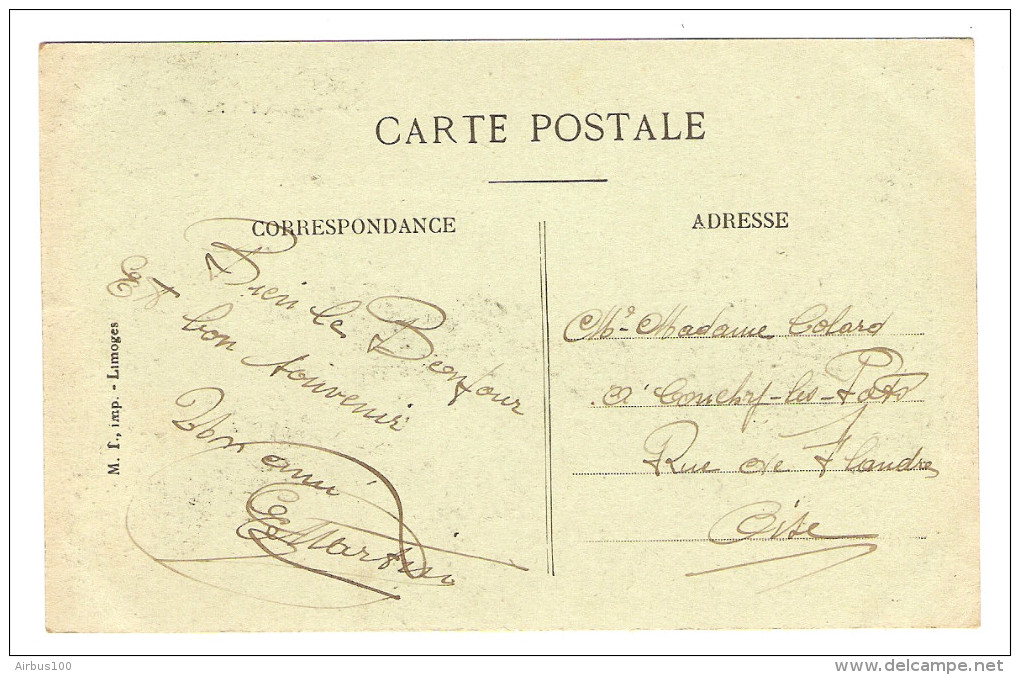 CARTE POSTALE
CORRESPONDANCE
Bien le Bonjour
Et bon souvenir
Von ami
Martin
ADRESSE
Mr Madame Colard
à Conchy-les-Pots
Rue de Flandre
Oise
M. T., imp. - Limoges
Airbus100
delcampe.net